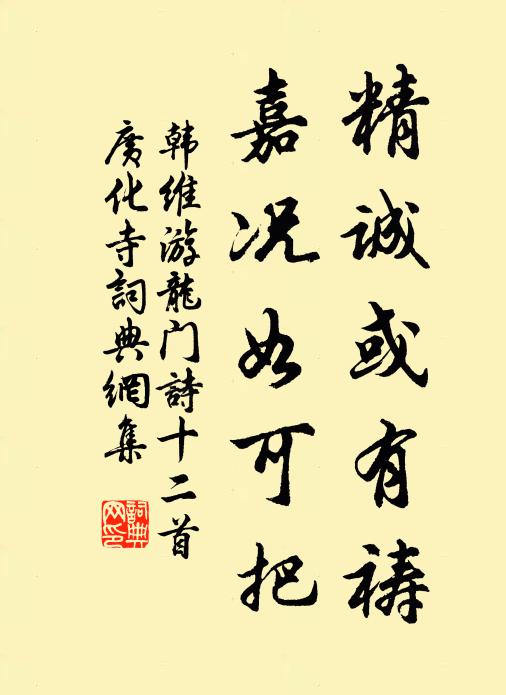 精诚或有祷
嘉况如可把
韩维游龍门詩十二首
廣化寺詞典網集
詞典网印